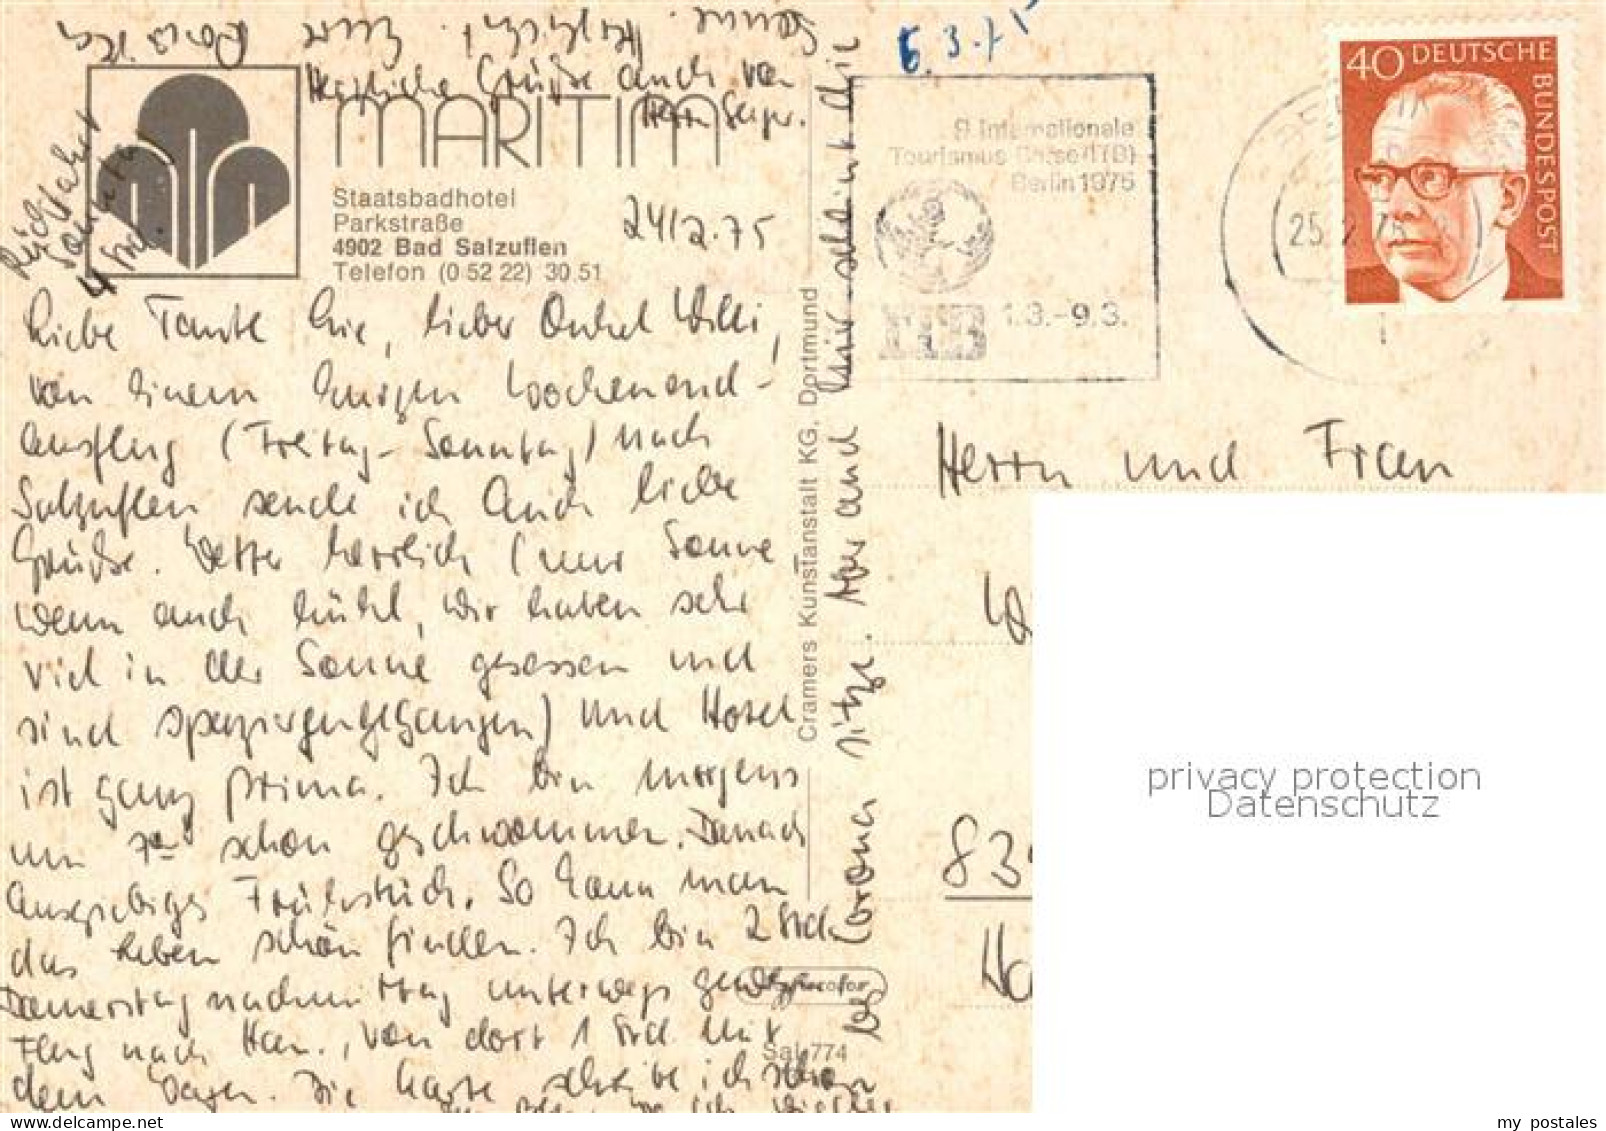 Herzliche Grüße auch von
Herrn
MARITIM
Staatsbadhotel
Parkstraße
4902 Bad Salzuflen
Telefon (0 52 22) 30 51
24/2.75
Rückfahrt
Sonntag
4 Std.
Liebe Tante Evie, lieber Onkel Willi,
von einem kurzen Wochenend-
ausflug (Freitag - Sonntag) nach
Salzuflen sende ich Euch liebe
Grüße. Wetter herrlich (nur Sonne
wenn auch kühl, wir haben sehr
viel in der Sonne gesessen und
sind spazierengegangen) und Hotel
ist ganz prima. Ich bin morgens
um 7°° schon geschwommen. Danach
ausgiebiges Frühstück. So kann man
das Leben schön finden. Ich bin 2 Std.
Donnerstag nachmittag unterwegs gewesen
Flug nach Han., von dort 1 Std. mit
dem Wagen. Die Karte schreibe ich schon
wo ich wieder
sitze. Nur auch hier scheint die
Sonne. Herzlichst Eure
Cramers Kunstanstalt KG, Dortmund
Sal 774
6.3.75
9 Internationale
Tourismus Börse (ITB)
Berlin 1975
ITB 1.3.-9.3.
BERLIN
25.2.75
40 DEUTSCHE
BUNDESPOST
Herrn und Frau
W
83
privacy protection
Datenschutz
my postales